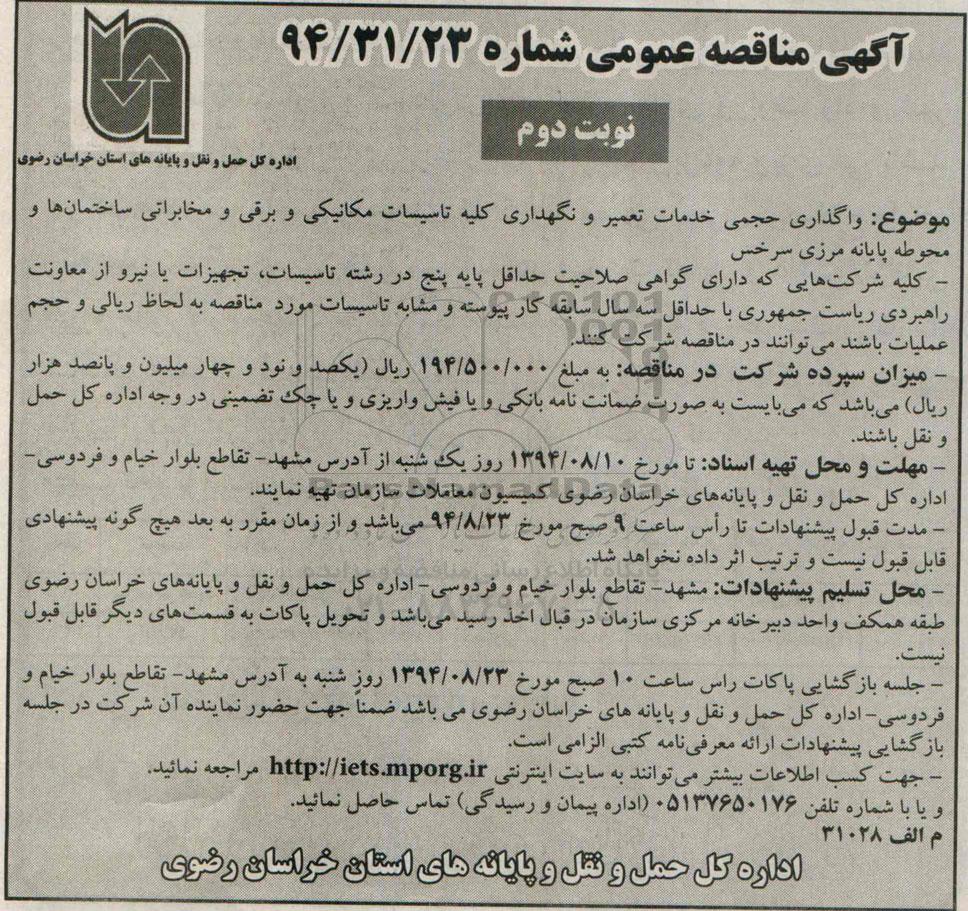 آگهی مناقصه عمومی شماره ۹۴/۳۱/۲۳
نوبت دوم
اداره کل حمل و نقل و پایانه های استان خراسان رضوی
موضوع: واگذاری حجمی خدمات تعمیر و نگهداری کلیه تاسیسات مکانیکی و برقی و مخابراتی ساختمان‌ها و
محوطه پایانه مرزی سرخس
- کلیه شرکت‌هایی که دارای گواهی صلاحیت حداقل پایه پنج در رشته تاسیسات، تجهیزات یا نیرو از معاونت
راهبردی ریاست جمهوری با حداقل سه سال سابقه کار پیوسته و مشابه تاسیسات مورد مناقصه به لحاظ ریالی و حجم
عملیات باشند می‌توانند در مناقصه شرکت کنند.
- میزان سپرده شرکت در مناقصه: به مبلغ ۱۹۴/۵۰۰/۰۰۰ ریال (یکصد و نود و چهار میلیون و پانصد هزار
ریال) می‌باشد که می‌بایست به صورت ضمانت نامه بانکی و یا فیش واریزی و یا چک تضمینی در وجه اداره کل حمل
و نقل باشند.
- مهلت و محل تهیه اسناد: تا مورخ ۱۳۹۴/۰۸/۱۰ روز یک شنبه از آدرس مشهد- تقاطع بلوار خیام و فردوسی-
اداره کل حمل و نقل و پایانه‌های خراسان رضوی کمیسیون معاملات سازمان تهیه نمایند.
- مدت قبول پیشنهادات تا رأس ساعت ۹ صبح مورخ ۹۴/۸/۲۳ می‌باشد و از زمان مقرر به بعد هیچ گونه پیشنهادی
قابل قبول نیست و ترتیب اثر داده نخواهد شد.
- محل تسلیم پیشنهادات: مشهد- تقاطع بلوار خیام و فردوسی - اداره کل حمل و نقل و پایانه‌های خراسان رضوی
طبقه همکف واحد دبیرخانه مرکزی سازمان در قبال اخذ رسید می‌باشد و تحویل پاکات به قسمت‌های دیگر قابل قبول
نیست.
- جلسه بازگشایی پاکات راس ساعت ۱۰ صبح مورخ ۱۳۹۴/۰۸/۲۳ روز شنبه به آدرس مشهد- تقاطع بلوار خیام و
فردوسی- اداره کل حمل و نقل و پایانه های خراسان رضوی می باشد ضمناً جهت حضور نماینده آن شرکت در جلسه
بازگشایی پیشنهادات ارائه معرفی‌نامه کتبی الزامی است.
- جهت کسب اطلاعات بیشتر می‌توانند به سایت اینترنتی http://iets.mporg.ir مراجعه نمائید.
و یا با شماره تلفن ۰۵۱۳۷۶۵۰۱۷۶ (اداره پیمان و رسیدگی) تماس حاصل نمائید.
م الف ۳۱۰۲۸
اداره کل حمل و نقل و پایانه های استان خراسان رضوی